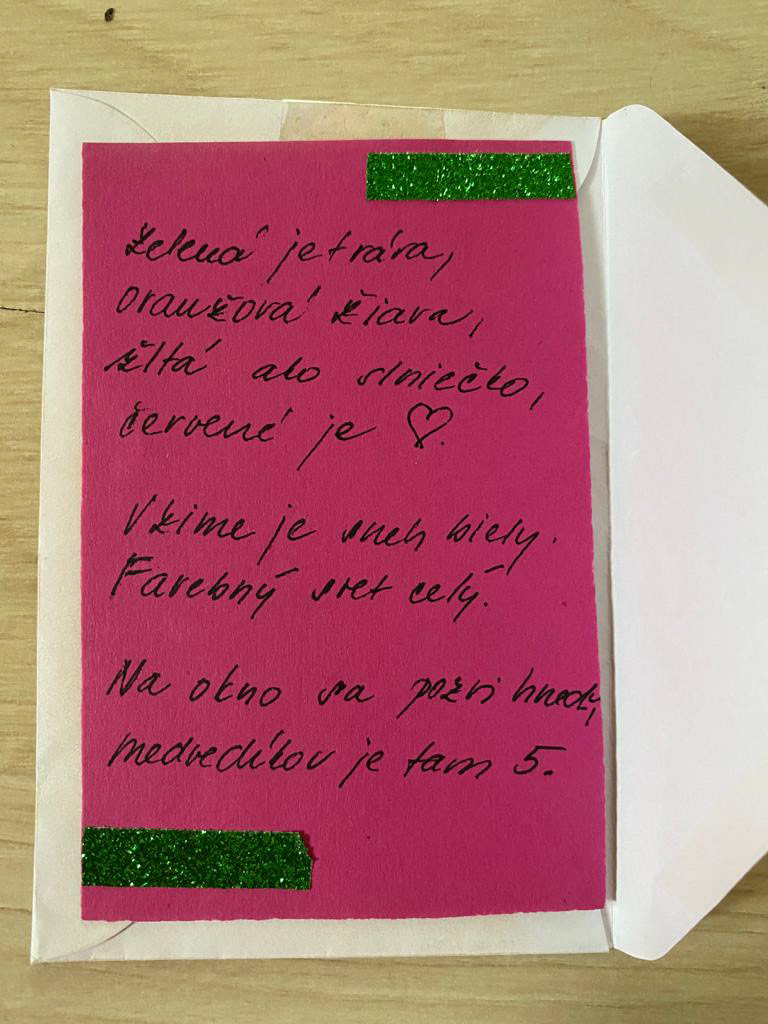 Zelená je tráva,
oranžová žiara,
žltá ako slniečko,
červené je ♡.
V zime je sneh biely.
Farebný svet celý.
Na okno sa pozri hneď,
medvedíkov je tam 5.